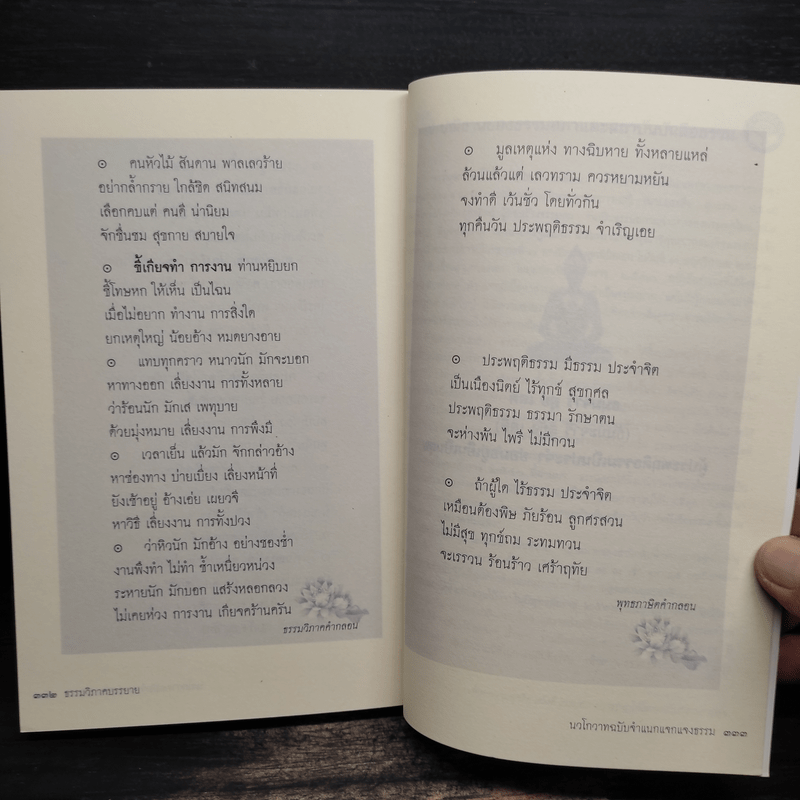 ๏ คนหัวไม้ สันดาน พาลเลวร้าย
อย่ากล้ำกราย ใกล้ชิด สนิทสนม
เลือกคบแต่ คนดี น่านิยม
จักชื่นชม สุขกาย สบายใจ
๏ ขี้เกียจทำ การงาน ท่านหยิบยก
ชี้โทษหก ให้เห็น เป็นไฉน
เมื่อไม่อยาก ทำงาน การสิ่งใด
ยกเหตุใหญ่ น้อยอ้าง หมดยางอาย
๏ แทบทุกคราว หนาวนัก มักจะบอก
หาทางออก เลี่ยงงาน การทั้งหลาย
ว่าร้อนนัก มักเส เพทุบาย
ด้วยมุ่งหมาย เลี่ยงงาน การพึงมี
๏ เวลาเย็น แล้วมัก จักกล่าวอ้าง
หาช่องทาง บ่ายเบี่ยง เลี่ยงหน้าที่
ยังเช้าอยู่ อ้างเอ่ย เผยวจี
หาวิธี เลี่ยงงาน การทั้งปวง
๏ ว่าหิวนัก มักอ้าง อย่างซองซ้ำ
งานพึงทำ ไม่ทำ ซ้ำเหนี่ยวหน่วง
ระหายนัก มักบอก แสร้งหลอกลวง
ไม่เคยห่วง การงาน เกียจคร้านครัน
ธรรมวิภาคคำกลอน
๓๓๒ ธรรมวิภาคบรรยาย
๏ มูลเหตุแห่ง ทางฉิบหาย ทั้งหลายแหล่
ล้วนแล้วแต่ เลวทราม ควรหยามหยัน
จงทำดี เว้นชั่ว โดยทั่วกัน
ทุกคืนวัน ประพฤติธรรม จำเริญเอย
๏ ประพฤติธรรม มีธรรม ประจำจิต
เป็นเนืองนิตย์ ไร้ทุกข์ สุขกุศล
ประพฤติธรรม ธรรมา รักษาตน
จะห่างพ้น ไพรี ไม่มีกวน
๏ ถ้าผู้ใด ไร้ธรรม ประจำจิต
เหมือนต้องพิษ ภัยร้อน ลูกศรสวน
ไม่มีสุข ทุกข์ถม ระทมทวน
จะเรรวน ร้อนร้าว เศร้าฤทัย
พุทธภาษิตคำกลอน
นวโกวาทฉบับจำแนกแจกแจงธรรม ๓๓๓